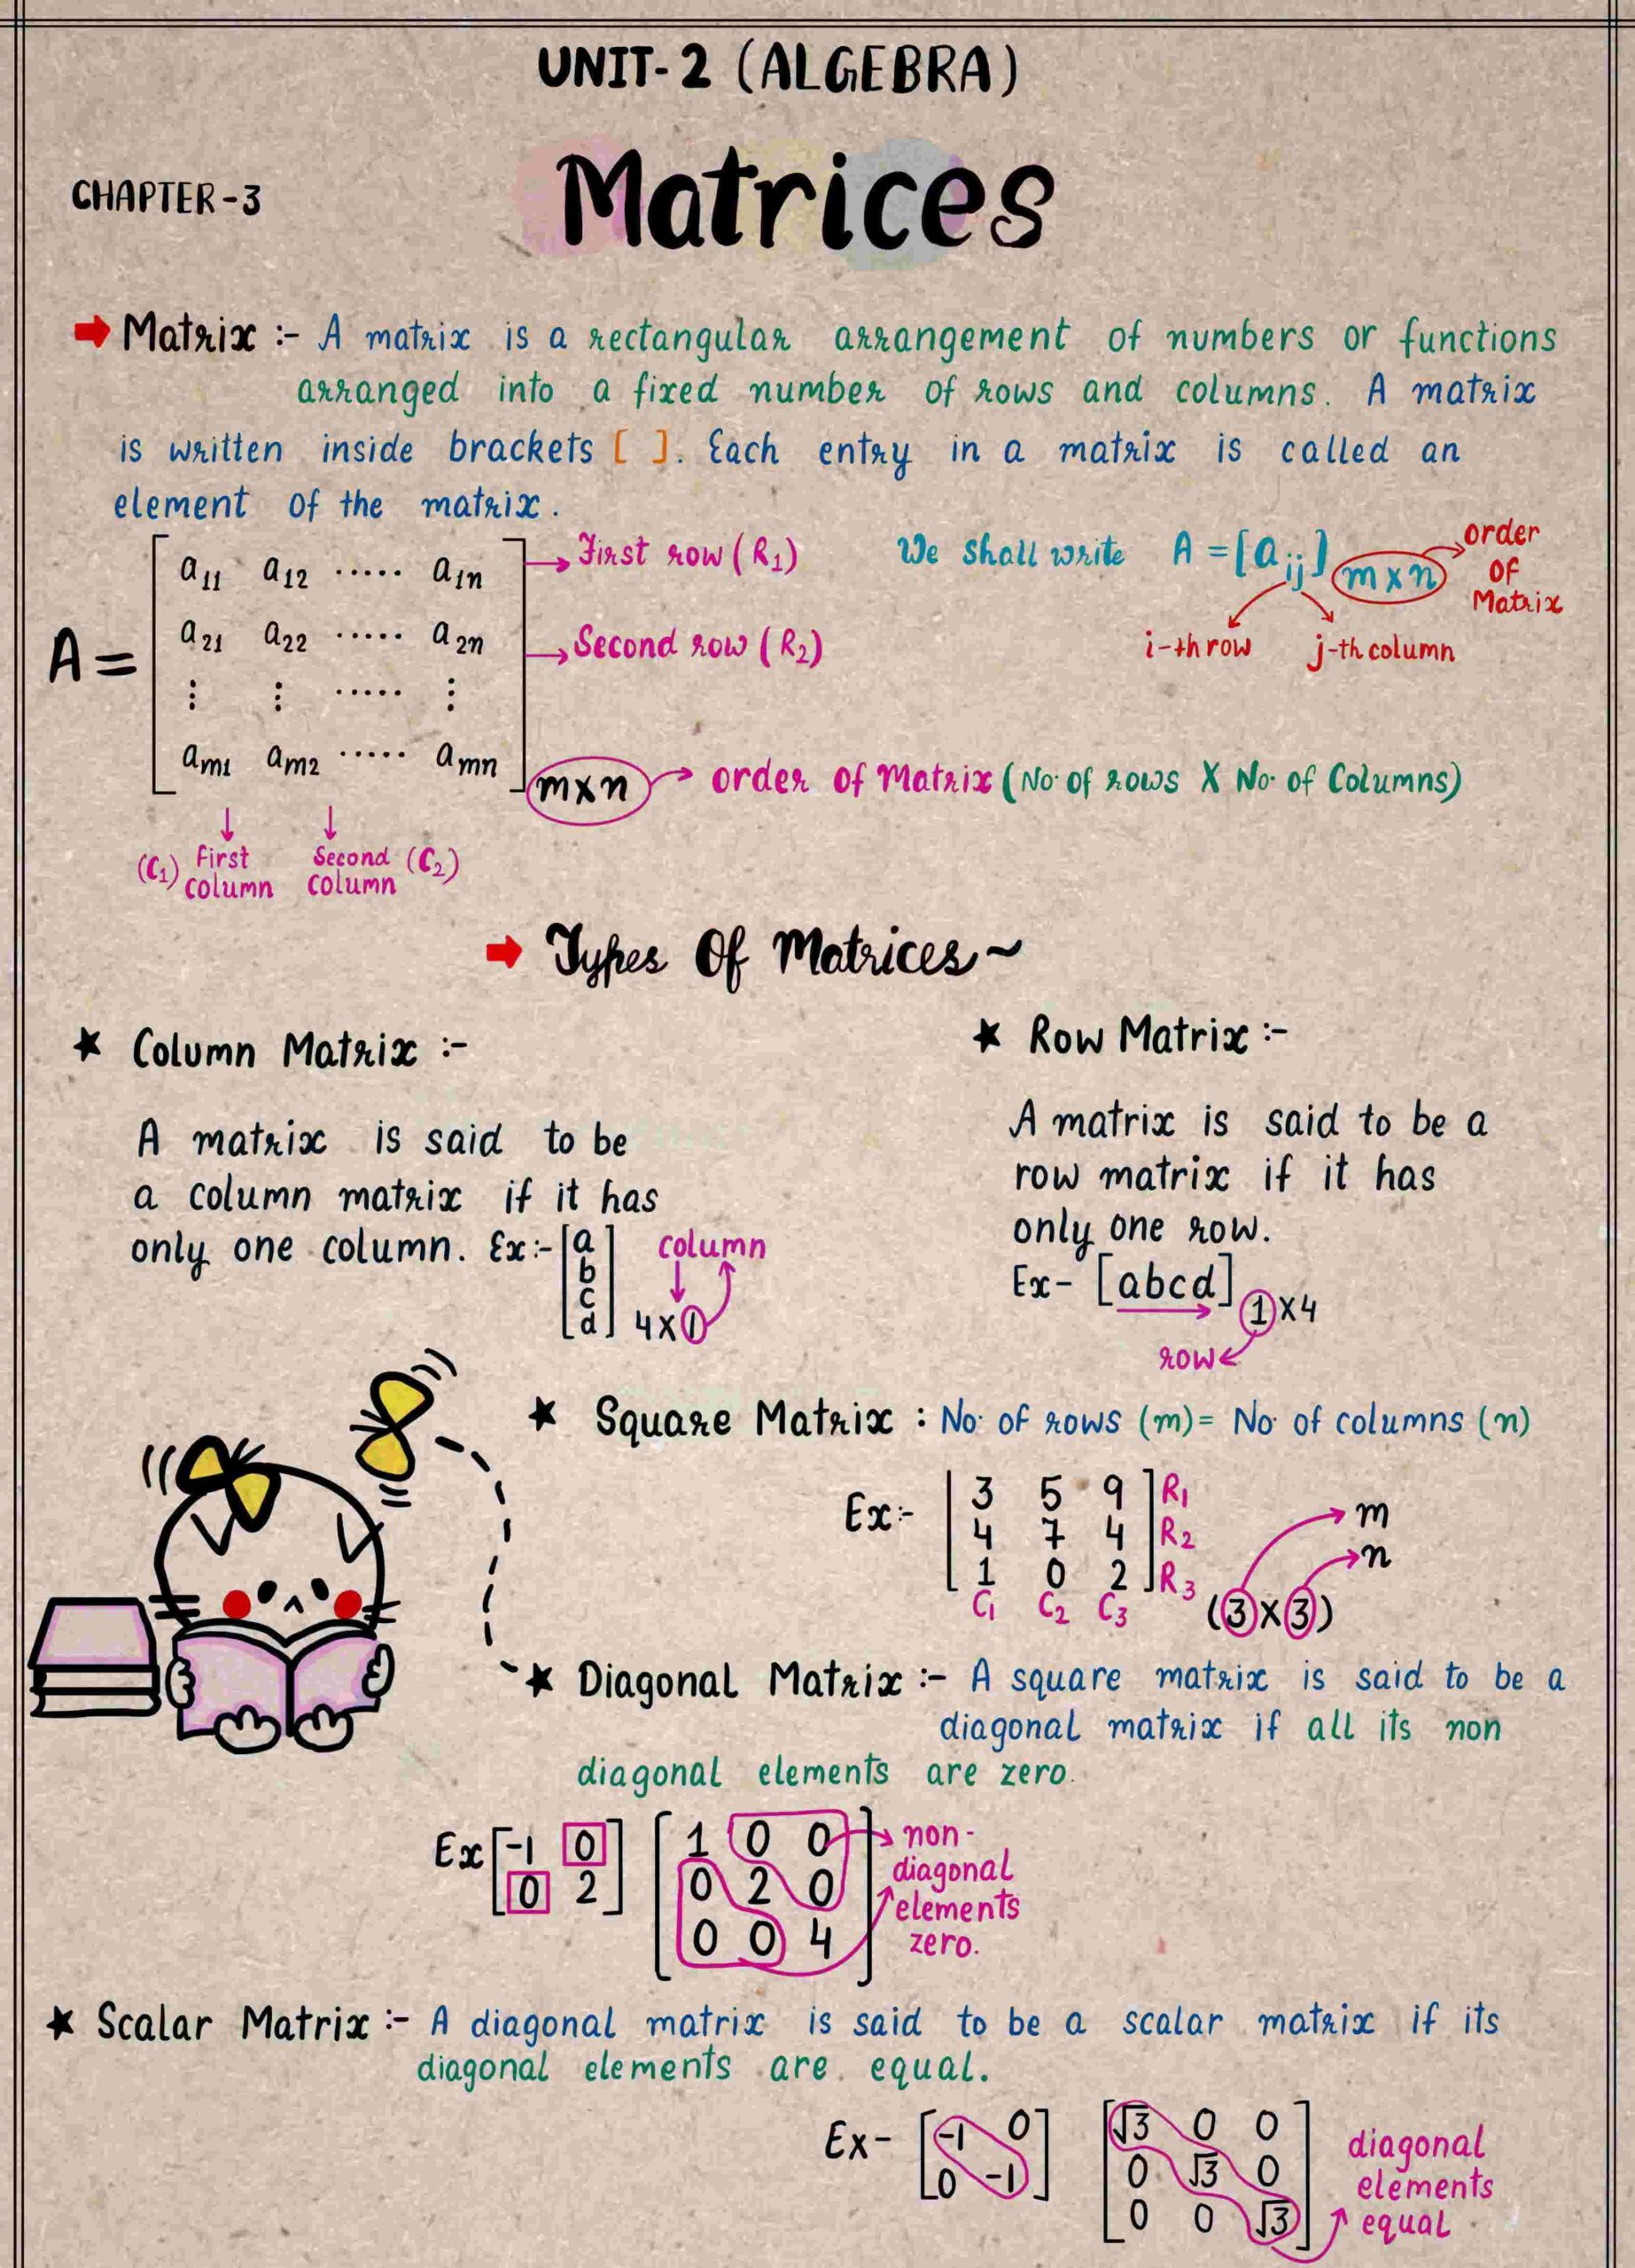 UNIT-2 (ALGEBRA)
CHAPTER-3
Matrices
Matrix :- A matrix is a rectangular arrangement of numbers or functions
arranged into a fixed number of rows and columns. A matrix
is written inside brackets [ ]. Each entry in a matrix is called an
element of the matrix.
A = [ a11 a12 ..... a1n ] First row (R1)
a21 a22 ..... a2n Second row (R2)
⋮ ⋮ ..... ⋮
am1 am2 ..... amn
m×n order of Matrix (No. of rows X No. of Columns)
(C1) First column
Second column (C2)
We shall write A = [aij] m×n
order of Matrix
i-th row j-th column
Types Of Matrices~
★ Column Matrix :-
A matrix is said to be
a column matrix if it has
only one column. Ex:- [a
b
c
d] 4×1
column
★ Row Matrix :-
A matrix is said to be a
row matrix if it has
only one row.
Ex- [abcd] 1×4
row
★ Square Matrix : No. of rows (m) = No. of columns (n)
Ex:- [ 3 5 9 ] R1
4 7 4 R2
1 0 2 R3
C1 C2 C3
(3×3)
m
n
★ Diagonal Matrix :- A square matrix is said to be a
diagonal matrix if all its non
diagonal elements are zero.
Ex [ -1 0
0 2 ]
[ 1 0 0
0 2 0
0 0 4 ]
non-
diagonal
elements
zero.
★ Scalar Matrix :- A diagonal matrix is said to be a scalar matrix if its
diagonal elements are equal.
Ex- [ -1 0
0 -1 ]
[ √3 0 0
0 √3 0
0 0 √3 ]
diagonal
elements
equal